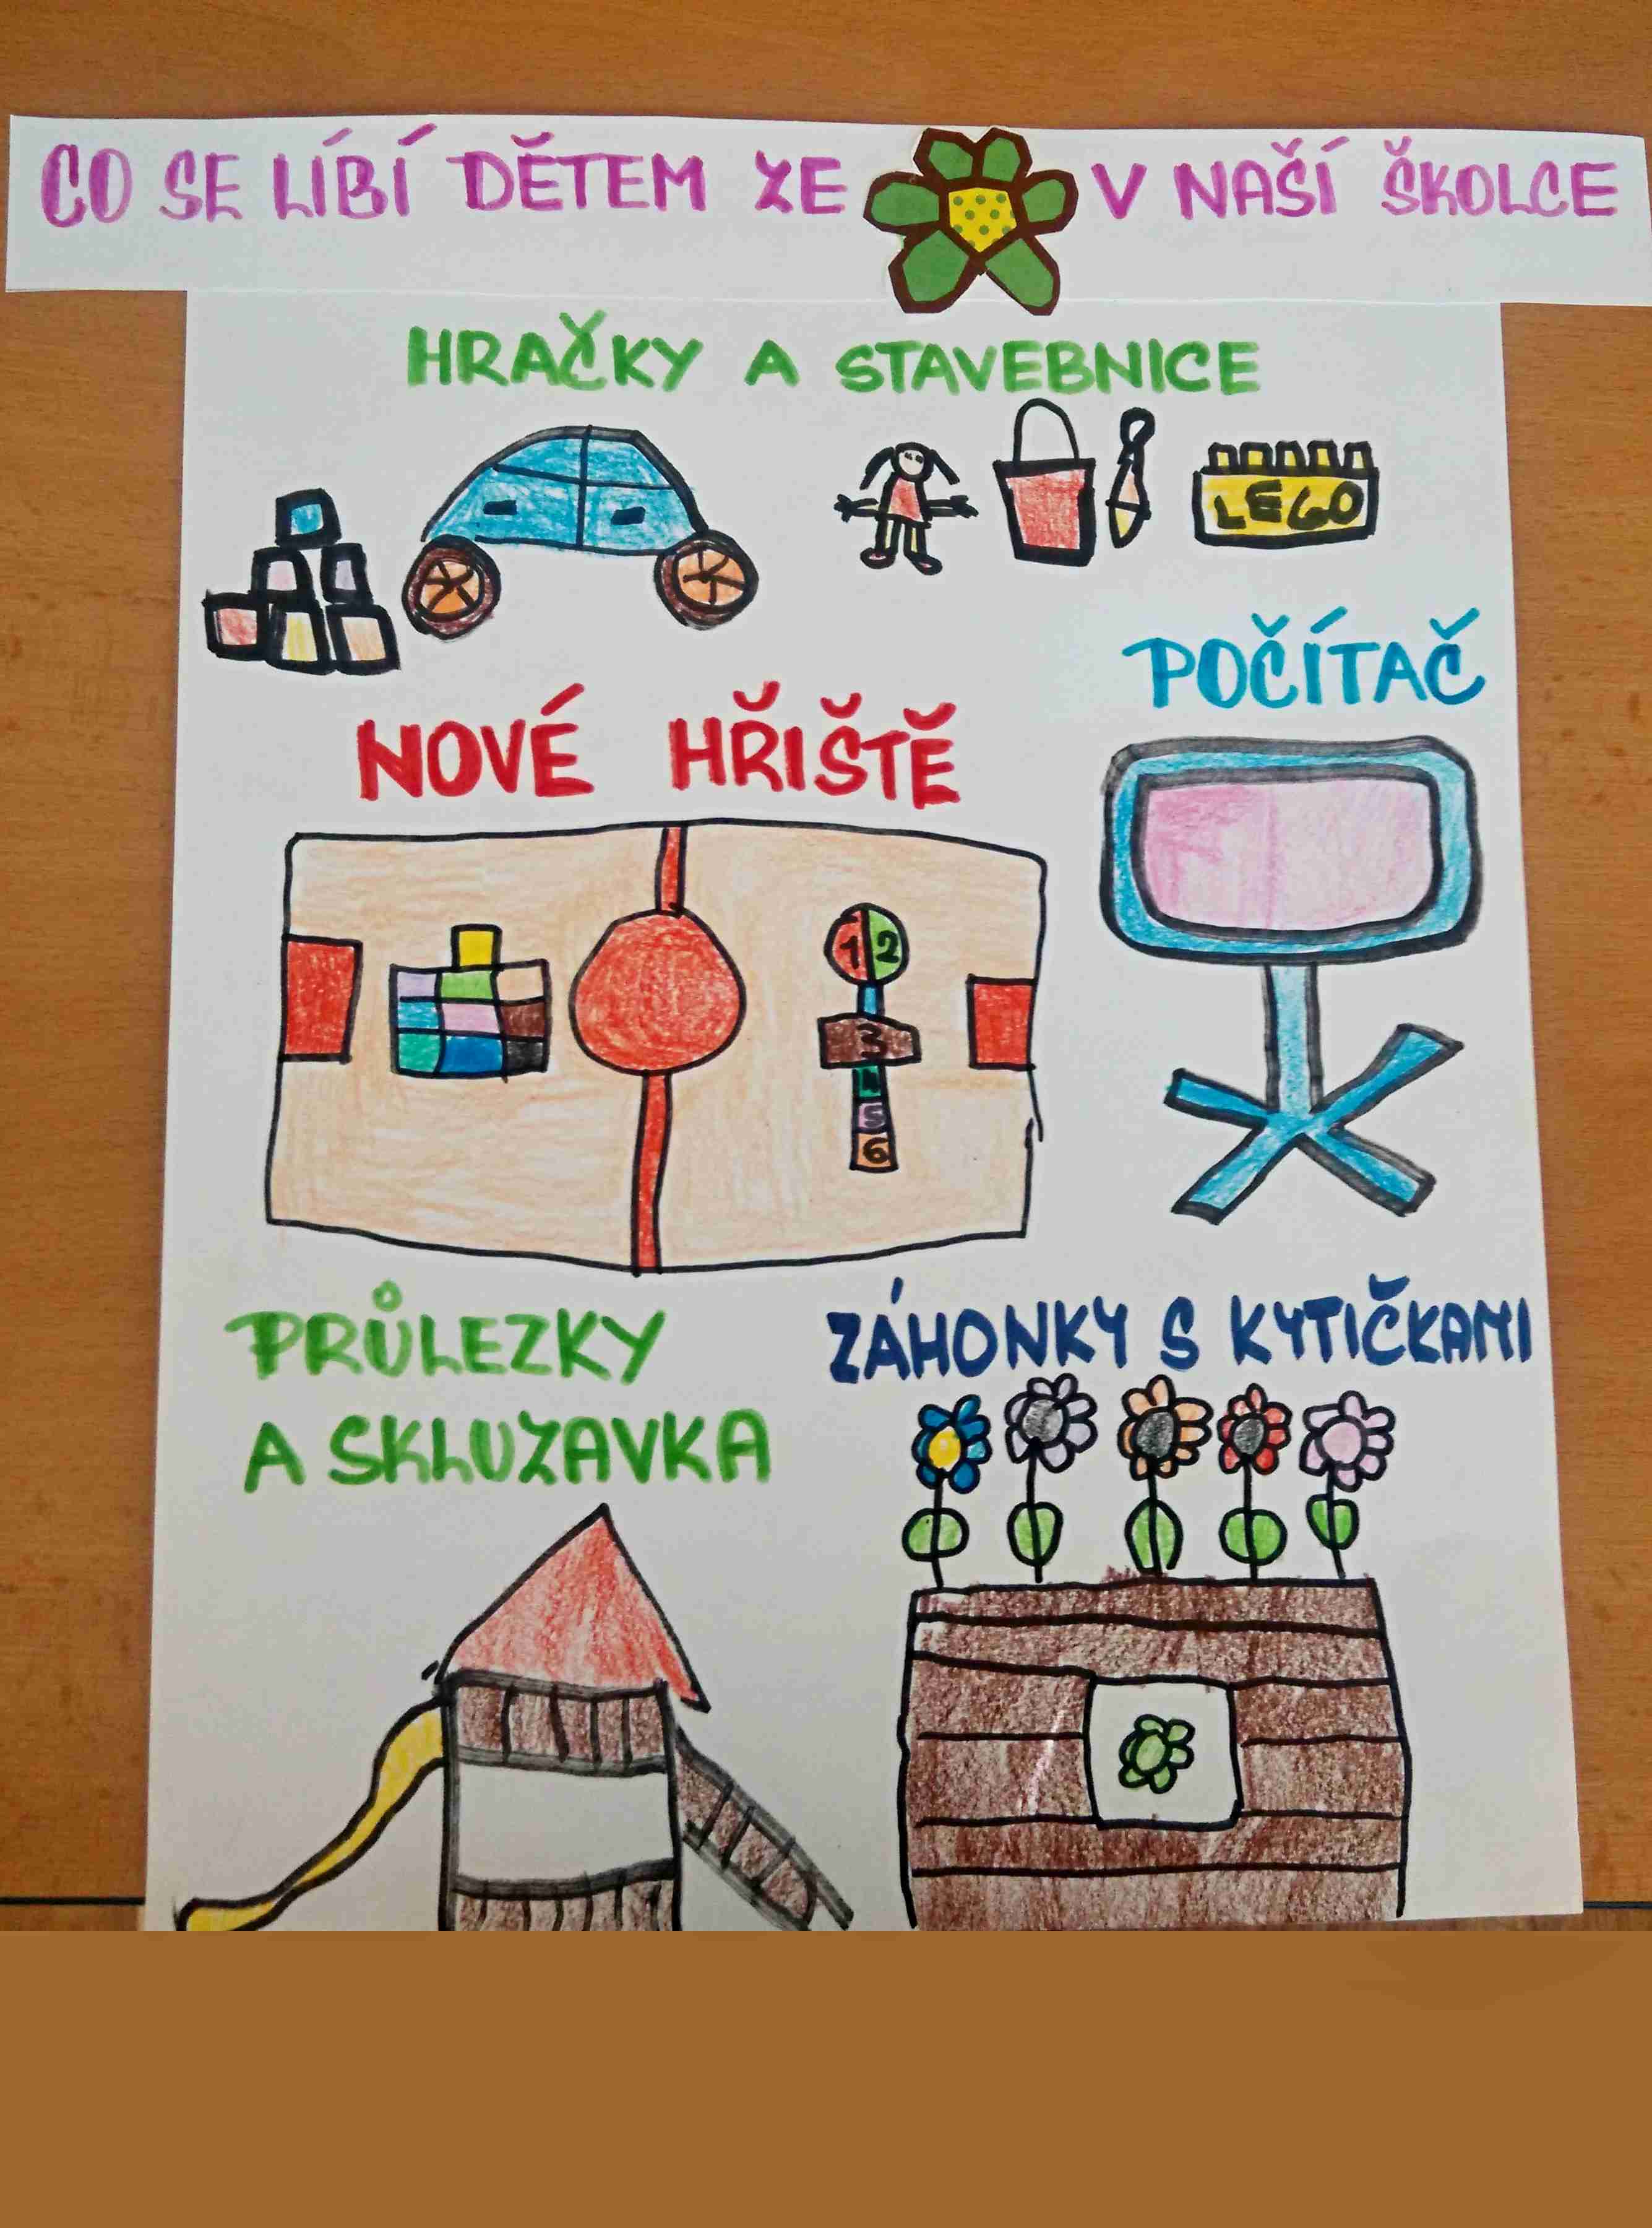 CO SE LÍBÍ DĚTEM ZE V NAŠÍ ŠKOLCE
HRAČKY A STAVEBNICE
LEGO
POČÍTAČ
NOVÉ HŘIŠTĚ
1 2
3
4
5
6
PRŮLEZKY
A SKLUZAVKA
ZÁHONKY S KYTIČKAMI